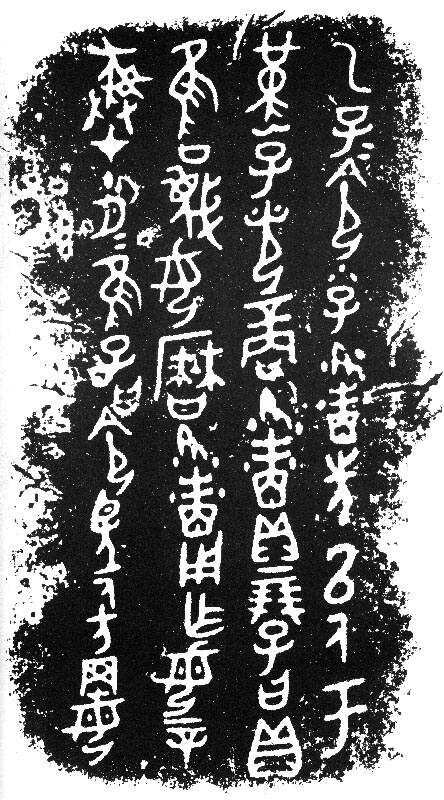 乙巳子令小子先以人于
堇子光商貝二朋子曰貝
唯蔑女曆用乍母辛
彝才十月二隹子曰令望人方罞